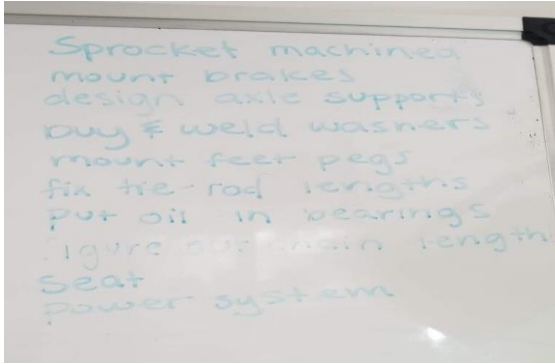 Sprocket machined
mount brakes
design axle supports
buy & weld washers
mount feet pegs
fix tie-rod lengths
put oil in bearings
figure out chain length
seat
power system